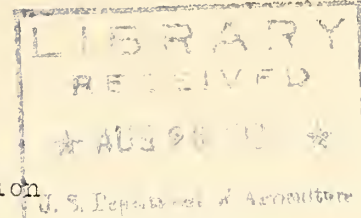 LIBRARY
RECEIVED
★ AUG ★
ion
U. S. Department of Agriculture